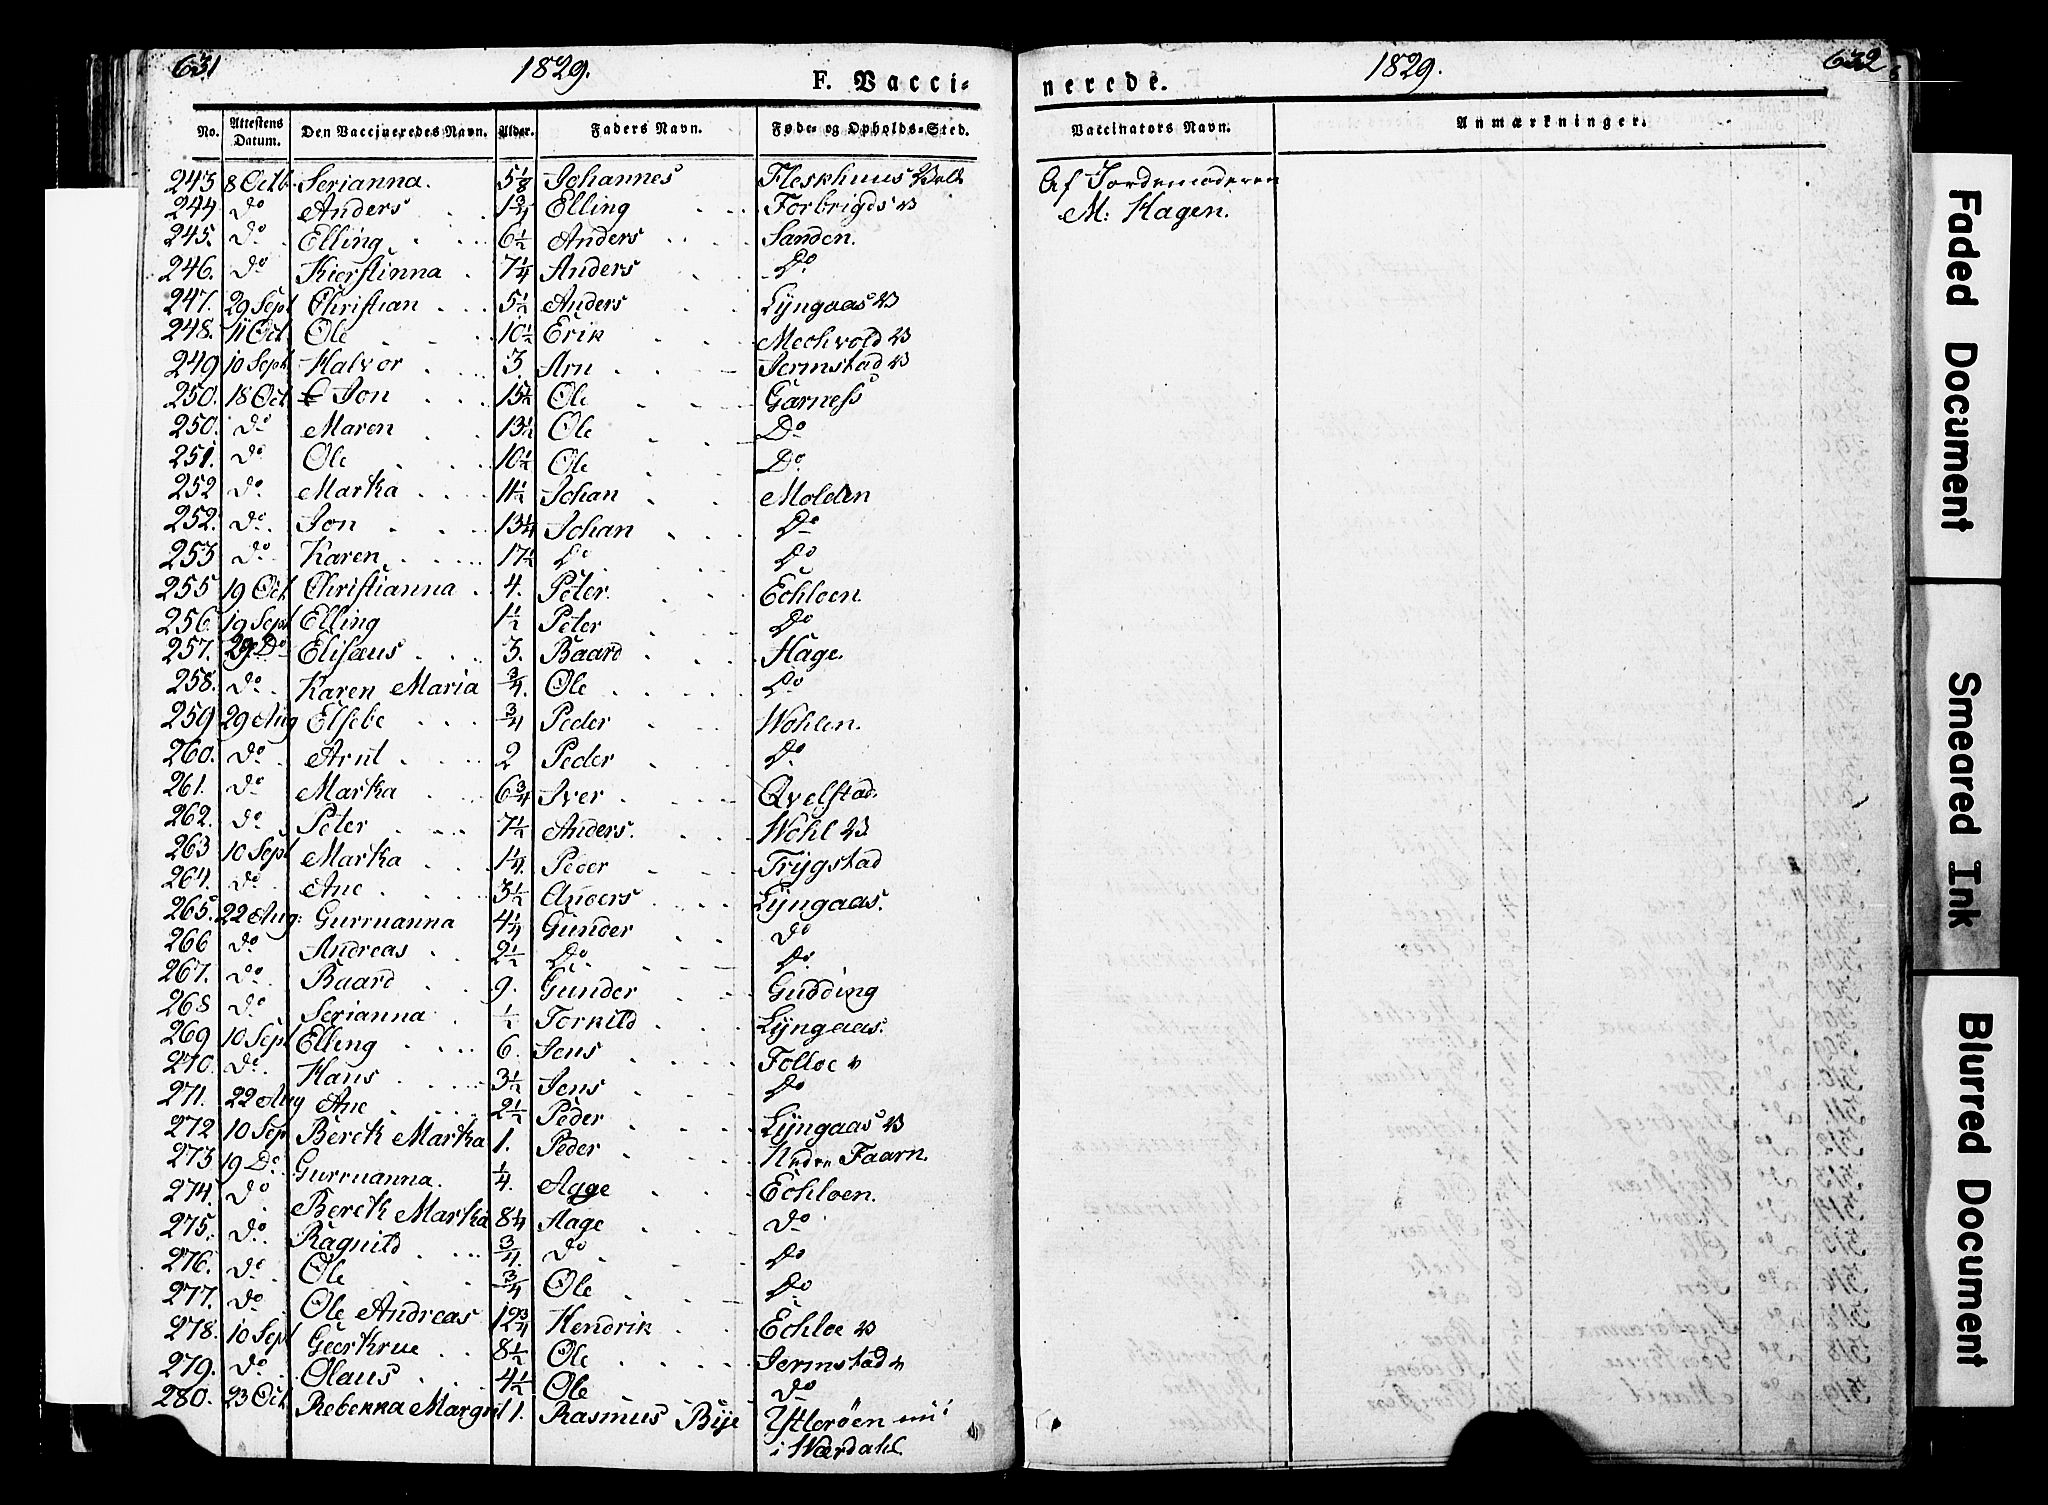 631 1829. F. Vacci-
No. Attestens Datum. Den Vaccineredes Navn. Alder. Faders Navn. Føde- og Opholds-Sted.
243 8 Octb. Serianna. 5 1/8 Johannes Fleskhuus Vald
244 Do Anders 1 3/4 Elling Forbrigds V
245. Do Elling 6 1/2 Anders Sanden.
246. Do Kierstinna 7 1/4 Anders Do
247. 29 Sept Christian 5 1/2 Anders Lyngaas V
248. 11 Oct Ole 10 1/2 Erik Mechvold V
249 10 Sept Halvor 3. Arn Jermstad V
250. 18 Oct Jon 15 1/2 Ole Garness
250. Do Maren 13 1/2 Ole Do
251. Do Ole 10 1/2 Ole Do
252 Do Martha 11 1/2 Johan Molden
252. Do Jon 13 1/4 Johan Do
253 Do Karen 17 1/2 Do Do
255 19 Oct Christianna 4. Peter Echloen
256. 19 Sept Elling 1 1/2 Peter Do
257. 29 Do Elisæus 3. Baard Hage.
258. Do Karen Maria 3/4. Ole Do
259 29 Aug Elsebe 3/4 Peder Wohlen.
260. Do Arnt 2 Peder Do
261. Do Martha 6 3/4 Iver Qvelstad.
262. Do Peter 7 1/2 Anders. Wohl V.
263 10 Sept Martha 1 1/4 Peder Trygstad
264. Do Ane 3 1/2 Anders Lyngaas.
265. 22 Aug: Gurruanna 4 1/4 Gunder Do
266 Do Andreas 2 1/2 Do Do
267. Do Baard 9. Gunder Gudding
268 Do Serianna 1/2 Torkild Lyngaas.
269 10 Sept Elling 6. Jens Folloe V
270. Do Hans 3 1/2 Jens Do
271. 22 Aug Ane 2 1/2 Peder Lyngaas V
272 10 Sep Bereth Martha 1. Peder Nedre Faarn.
273 19 Do Gurruanna. 1/4. Aage Echloen.
274. Do Bereth Martha 8 1/4 Aage Do
275. Do Ragnild 3/4. Do Do
276. Do Ole 3/4 Ole Do
277. Do Ole Andreas 12 3/4 Hendrik Echloe V
278. 10 Sept Geertrue 8 1/2 Ole Jermstad V
279. Do Olaus 4 1/2 Ole Do
280. 23 Oct Rebekka Margret 1. Rasmus Bye Ytterøen nu
i Wærdahl
nerede. 1829. 632
Vaccinators Navn. Anmærkninger.
Af Jordemoderen
M: Hagen.
Faded Document
Smeared Ink
Blurred Document